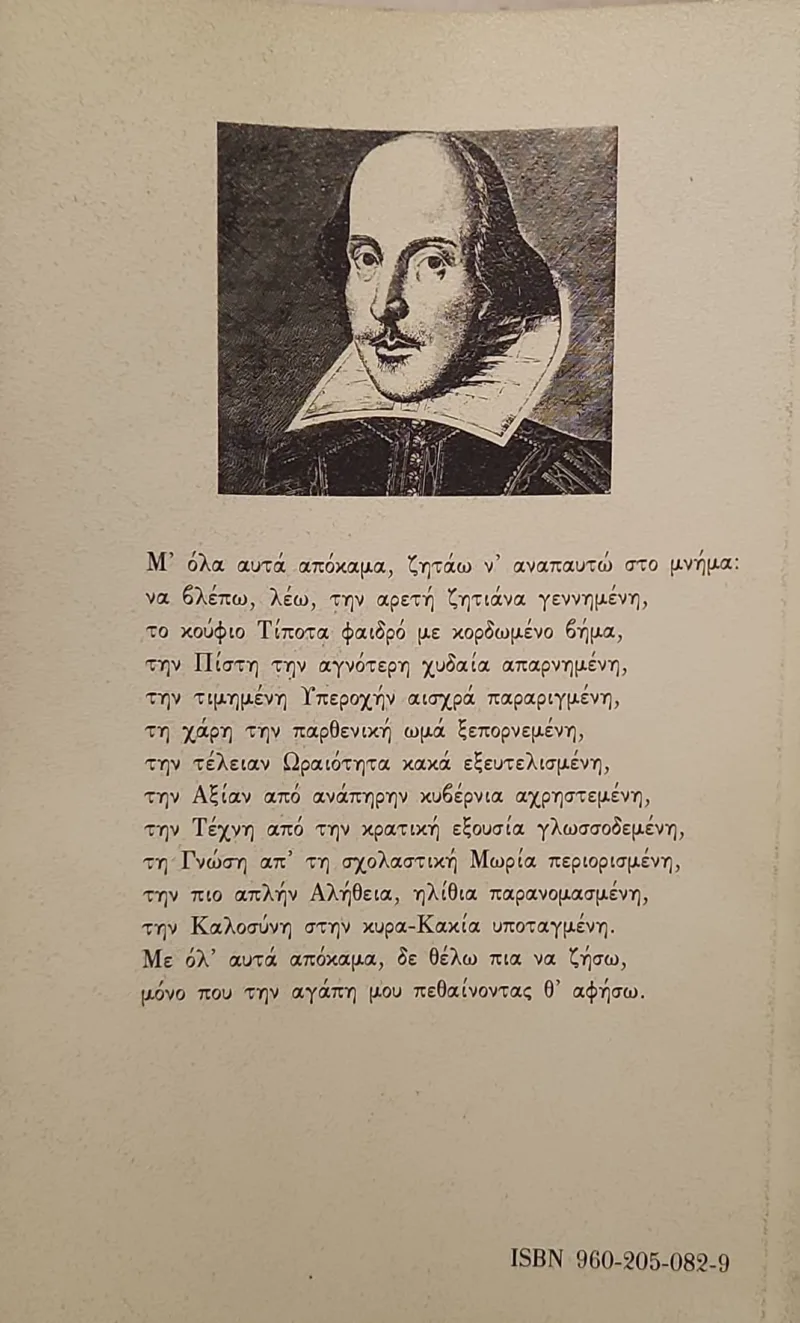 Μ' όλα αυτά απόκαμα, ζητάω ν' αναπαυτώ στο μνήμα:
να βλέπω, λέω, την αρετή ζητιάνα γεννημένη,
το κούφιο Τίποτα φαιδρό με κορδωμένο βήμα,
την Πίστη την αγνότερη χυδαία απαρνημένη,
την τιμημένη Υπεροχήν αισχρά παραριγμένη,
τη χάρη την παρθενική ωμά ξεπορνεμένη,
την τέλειαν Ωραιότητα κακά εξευτελισμένη,
την Αξίαν από ανάπηρην κυβέρνια αχρηστεμένη,
την Τέχνη από την κρατική εξουσία γλωσσοδεμένη,
τη Γνώση απ' τη σχολαστική Μωρία περιορισμένη,
την πιο απλήν Αλήθεια, ηλίθια παρανομασμένη,
την Καλοσύνη στην κυρα-Κακία υποταγμένη.
Με όλ' αυτά απόκαμα, δε θέλω πια να ζήσω,
μόνο που την αγάπη μου πεθαίνοντας θ' αφήσω.
ISBN 960-205-082-9